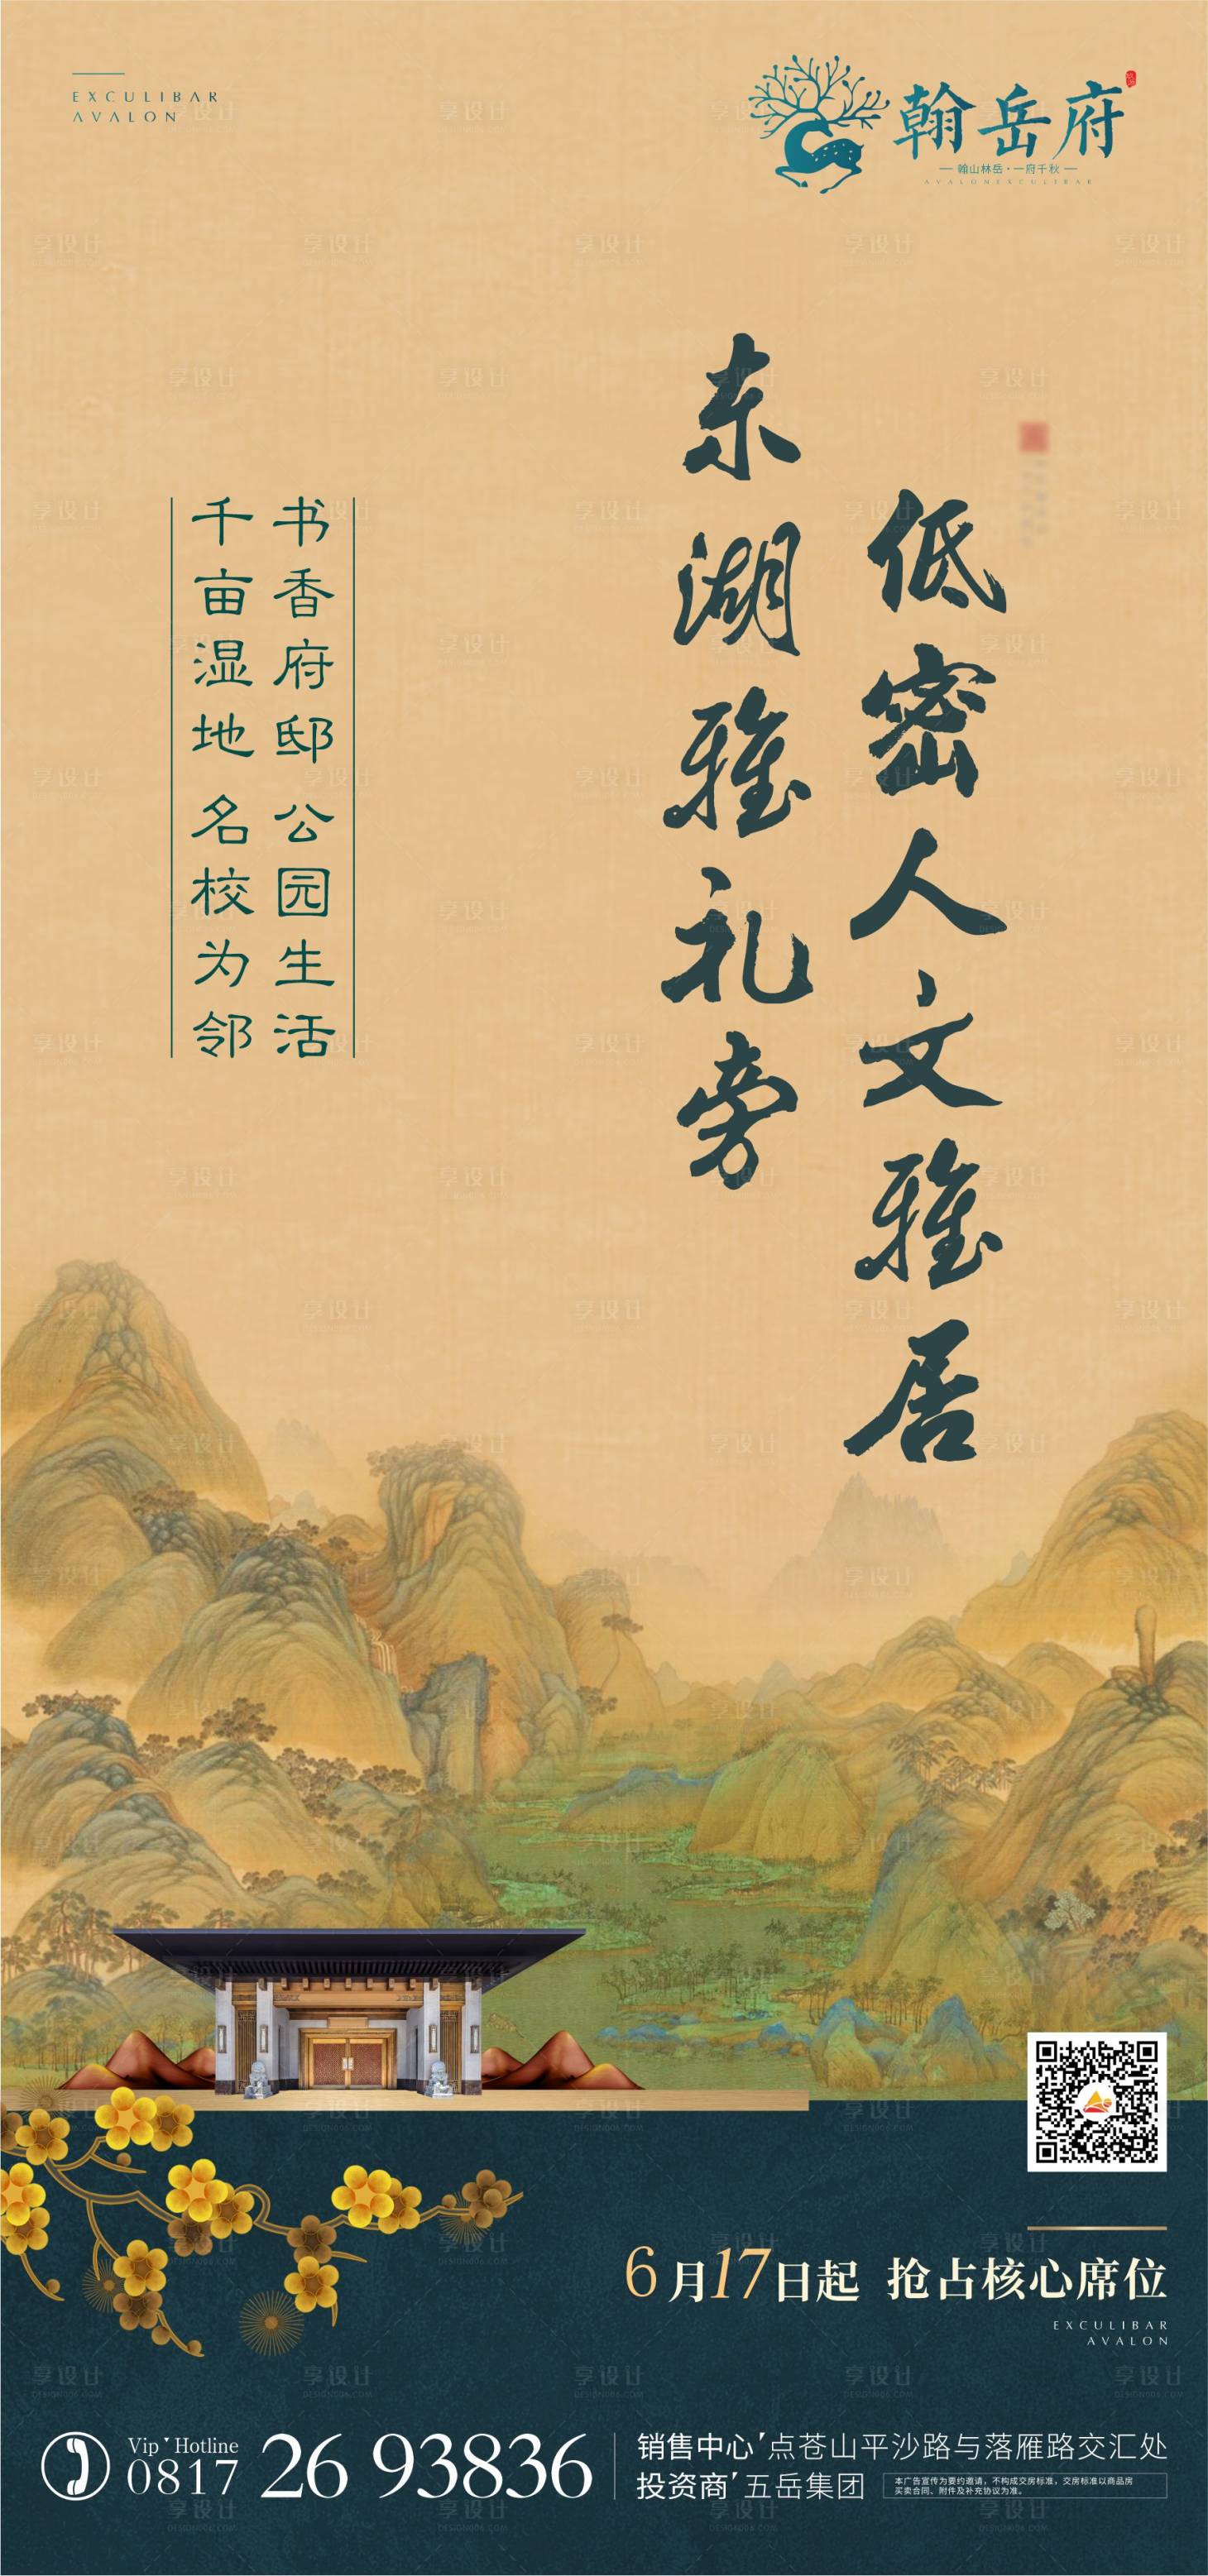 EXCULIBAR
AVALON
翰岳府
翰山林岳·一府千秋
AVALONEXCULIBAR
低密人文雅居
东湖雅礼旁
书香府邸 公园生活
千亩湿地 名校为邻
6月17日起 抢占核心席位
EXCULIBAR
AVALON
Vip Hotline
0817 26 93836
销售中心 点苍山平沙路与落雁路交汇处
投资商 五岳集团
本广告宣传为要约邀请，不构成交房标准，交房标准以商品房
买卖合同、附件及补充协议为准。
享设计
DESIGN006.COM